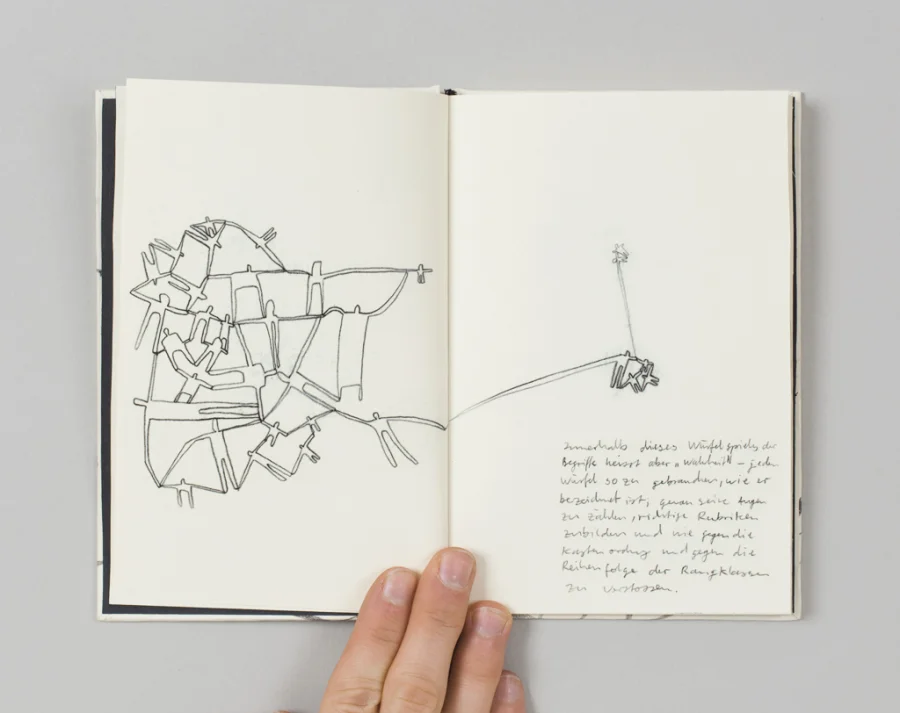 Innerhalb dieses Würfelspiels der
Begriffe heisst aber „Wahrheit" – jeden
Würfel so zu gebrauchen, wie er
bezeichnet ist; genau seine Augen
zu zählen, richtige Rubriken
zu bilden und nie gegen die
Kastenordnung und gegen die
Reihenfolge der Rangklassen
zu verstossen.